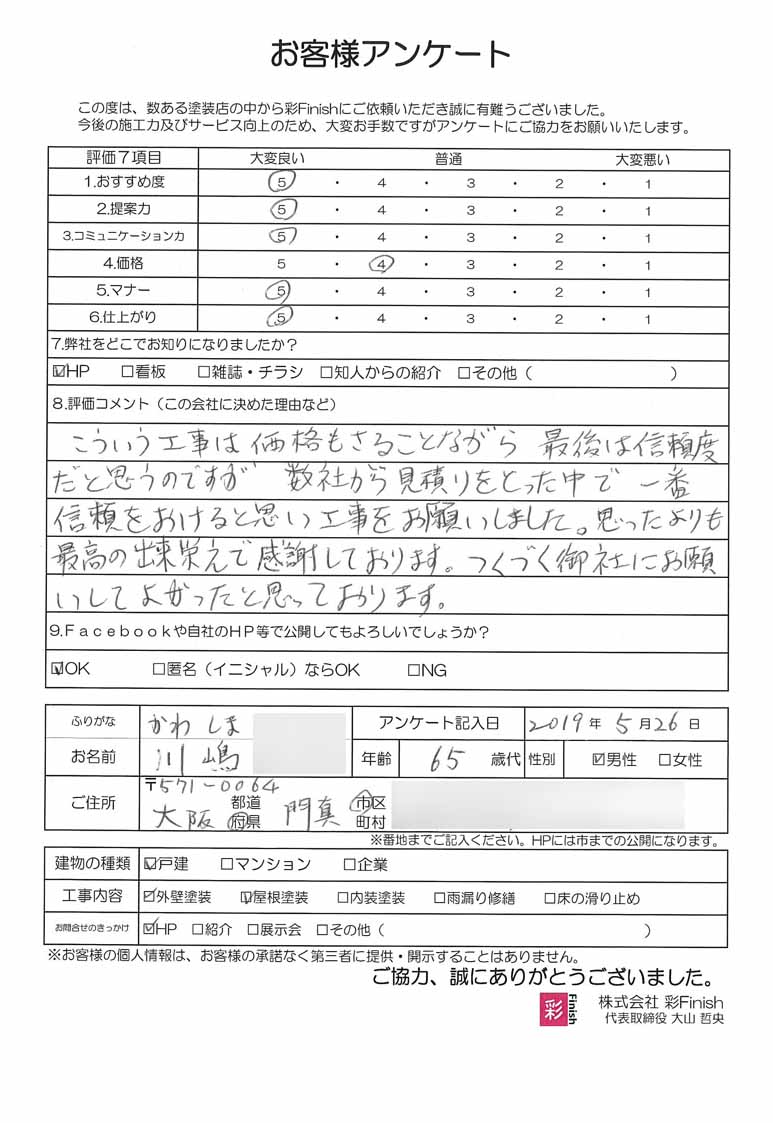 お客様アンケート
この度は、数ある塗装店の中から彩Finishにご依頼いただき誠に有難うございました。
今後の施工力及びサービス向上のため、大変お手数ですがアンケートにご協力をお願いいたします。
評価7項目 大変良い 普通 大変悪い
1.おすすめ度 5 ・ 4 ・ 3 ・ 2 ・ 1
2.提案力 5 ・ 4 ・ 3 ・ 2 ・ 1
3.コミュニケーション力 5 ・ 4 ・ 3 ・ 2 ・ 1
4.価格 5 ・ 4 ・ 3 ・ 2 ・ 1
5.マナー 5 ・ 4 ・ 3 ・ 2 ・ 1
6.仕上がり 5 ・ 4 ・ 3 ・ 2 ・ 1
7.弊社をどこでお知りになりましたか？
☑HP □看板 □雑誌・チラシ □知人からの紹介 □その他（ ）
8.評価コメント（この会社に決めた理由など）
こういう工事は価格もさることながら 最後は信頼度
だと思うのですが 数社から見積りをとった中で 一番
信頼をおけると思い工事をお願いしました。思ったよりも
最高の出来栄えで感謝しております。つくづく御社にお願
いしてよかったと思っております。
9.Facebookや自社のHP等で公開してもよろしいでしょうか？
☑OK □匿名（イニシャル）ならOK □NG
ふりがな かわ しま アンケート記入日 2019年 5月26日
お名前 川嶋 年齢 65 歳代 性別 ☑男性 □女性
〒571-0064
ご住所 大阪 都道府県 門真 市区町村
※番地までご記入ください。HPには市までの公開になります。
建物の種類 ☑戸建 □マンション □企業
工事内容 ☑外壁塗装 ☑屋根塗装 □内装塗装 □雨漏り修繕 □床の滑り止め
お問合せのきっかけ ☑HP □紹介 □展示会 □その他（ ）
※お客様の個人情報は、お客様の承諾なく第三者に提供・開示することはありません。
ご協力、誠にありがとうございました。
彩 Finish 株式会社 彩Finish
代表取締役 大山 哲央